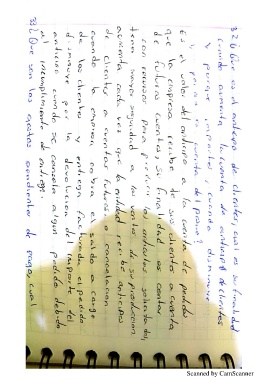 32 ¿Que es el anticipo de clientes, cual es su finalidad
cuando aumenta la cuenta de anticipo de clientes
y porque importes y cuando disminuye
y porque importes?
Es el valor del anticipo a la cuenta de pedidos
que la empresa recibe de sus clientes a cuenta
de futuras cuentas, su finalidad es contar
con recursos para producir los productos solicitados,
tener mayor seguridad a las ventas de su producción
aumenta cada vez que la entidad recibe anticipos
de clientes a cuentas futuras o cancelación
cuando la empresa cobra el saldo a cargo
de los clientes y entrega facturado el pedido
disminuye por la devolución del importe del
anticipo cuando se cancela algun pedido debido
al incumplimiento de entrega.
33 ¿Que son los gastos pendientes de pago, cual
Scanned by CamScanner